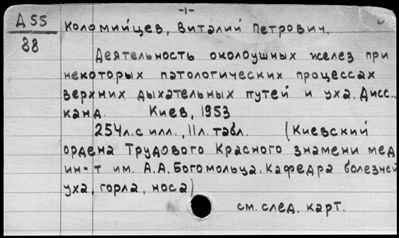 -1-
Д 55
88
Коломийцев, Виталий Петрович.
Деятельность околоушных желез при
некоторых патологических процессах
верхних дыхательных путей и уха. Дисс..
канд. Киев, 1953
254л. с илл., 11л. табл. (Киевский
ордена Трудового Красного знамени мед.
ин-т им. А.А. Богомольца. Кафедра болезней
уха, горла, носа)
см. след. карт.